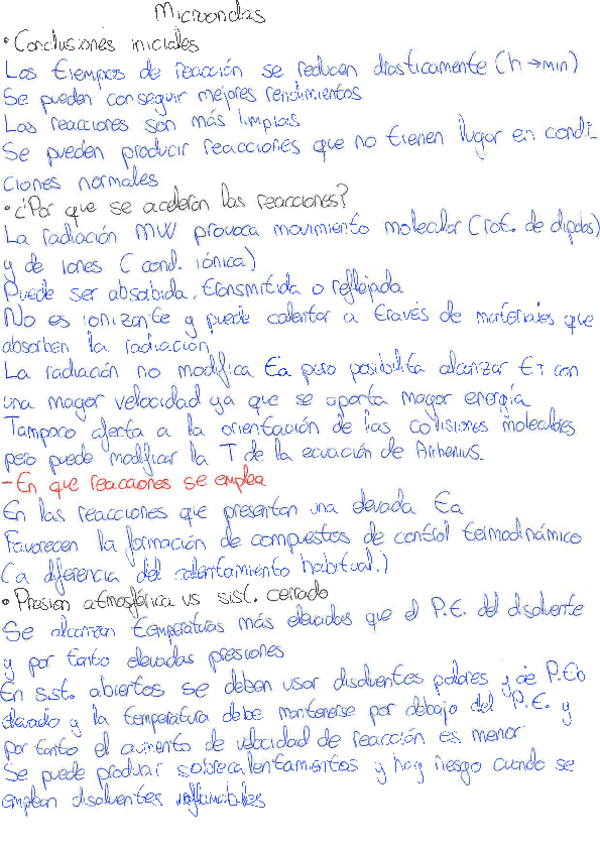 Microondas
• Conclusiones iniciales
Los tiempos de reacción se reducen drasticamente (h → min)
Se pueden conseguir mejores rendimientos
Las reacciones son más limpias
Se pueden producir reacciones que no tienen lugar en condi-
ciones normales
• ¿Por que se aceleran las reacciones?
La radiación MW provoca movimiento molecular (rot. de dipolos)
y de iones (cond. iónica)
Puede ser absorbida, transmitida o reflejada
No es ionizante y puede calentar a través de materiales que
absorben la radiación
La radiación no modifica Ea pero posibilita alcanzar ET con
una mayor velocidad ya que se aporta mayor energía
Tampoco afecta a la orientación de las colisiones moleculares
pero puede modificar la T de la ecuación de Arrhenius.
- En que reacciones se emplea
En las reacciones que presentan una elevada Ea
Favorecen la formación de compuestos de control termodinámico
(a diferencia del calentamiento habitual.)
• Presion atmosférica vs sist. cerrado
Se alcanzan temperaturas más elevadas que el P.E. del disolvente
y por tanto elevadas presiones
En sist. abiertos se deben usar disolventes polares y de P.Eb
elevado y la temperatura debe mantenerse por debajo del P.E. y
por tanto el aumento de velocidad de reacción es menor
Se puede producir sobrecalentamientos y hay riesgo cuando se
emplean disolventes inflamables